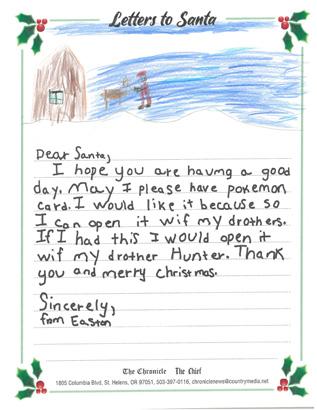 Letters to Santa
Dear Santa,
I hope you are having a good
day. May I please have pokemon
card. I would like it because so
I can open it wif my drothers.
If I had this I would open it
wif my drother Hunter. Thank
you and merry christmas.
Sincerely,
from Easton
The Chronicle The Chief
1805 Columbia Blvd, St. Helens, OR 97051, 503-397-0116, chroniclenews@countrymedia.net